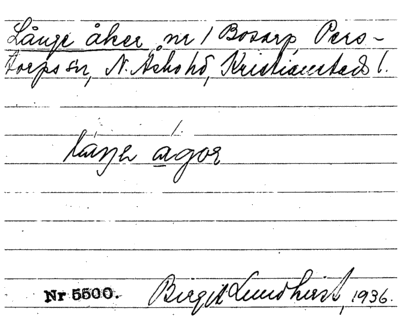 Långe åker, nr 1 Bosarp Pers-
torps sn, N. Åsbo hd, Kristianstads l.
låŋer ágor
Nr 5500. Birgit Lundqvist, 1936.